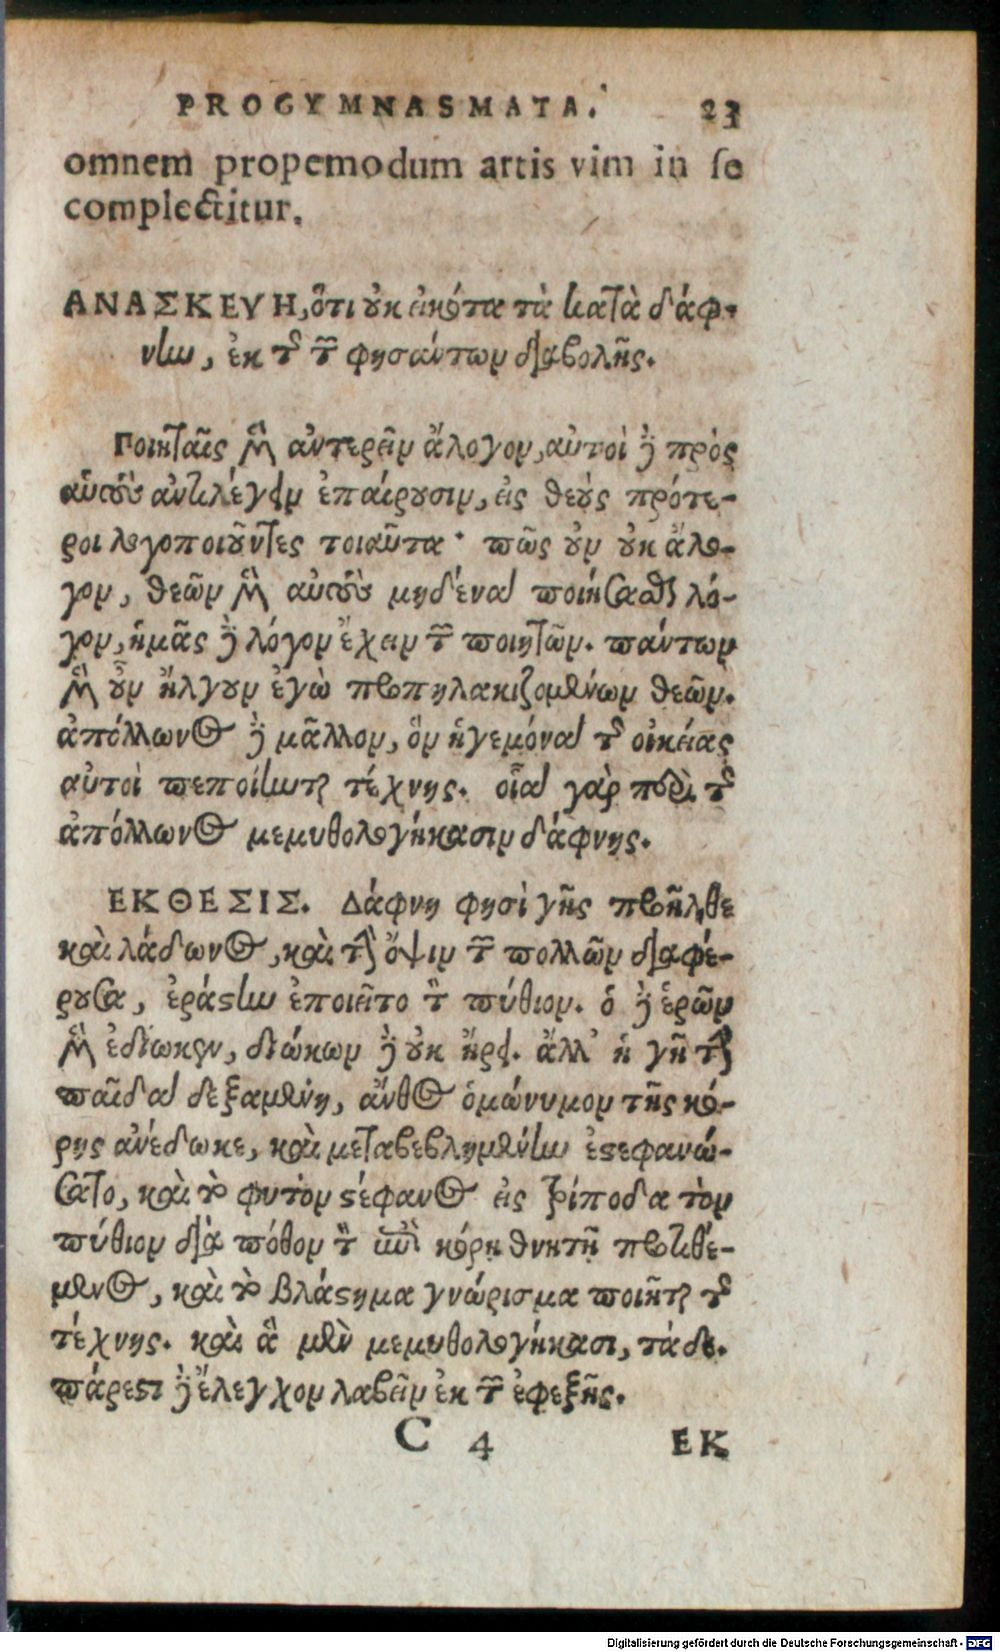 PROGYMNASMATA. 23
omnem propemodum artis vim in se
complectitur.
ΑΝΑΣΚΕΥΗ, ὅτι οὐκ εἰκότα τὰ κατὰ δάφ-
νην, ἐκ τῆς τῶν φησάντων διαβολῆς.
Ποιηταῖς μὲν ἀντερεῖν ἄλογον, αὐτοὶ δὲ πρὸς
αὑτοὺς ἀντιλέγειν ἐπαίρουσιν, εἰς θεοὺς πρότε-
ροι λογοποιοῦντες τοιαῦτα· πῶς οὖν οὐκ ἄλο-
γον, θεῶν μὲν αὐτοὺς μηδένα ποιήσασθαι λό-
γον, ἡμᾶς δὲ λόγον ἔχειν τῶν ποιητῶν. πάντων
μὲν οὖν ἤλγουν ἐγὼ προπηλακιζομένων θεῶν.
ἀπόλλωνος δὲ μᾶλλον, ὃν ἡγεμόνα τῆς οἰκείας
αὐτοὶ πεποίηνται τέχνης. οἷα γὰρ περὶ τῆς
ἀπόλλωνος μεμυθολογήκασιν δάφνης.
ΕΚΘΕΣΙΣ. Δάφνη φησὶ γῆς προῆλθε
καὶ λάδωνος, καὶ τὴν ὄψιν τῶν πολλῶν διαφέ-
ρουσα, ἐραστὴν ἐποιεῖτο τὸν πύθιον. ὁ δὲ ἐρῶν
μὲν ἐδίωκεν, διώκων δὲ οὐκ ᾕρει. ἀλλ' ἡ γῆ τὴν
παῖδα δεξαμένη, ἄνθος ὁμώνυμον τῆς κό-
ρης ἀνέδωκε, καὶ μεταβεβλημένην ἐστεφανώ-
σατο, καὶ τὸ φυτὸν στέφανος εἰς τρίποδα τὸν
πύθιον διὰ πόθον τὸν σὺν κόρῃ θνητῇ προτιθέ-
μενος, καὶ τὸ βλάστημα γνώρισμα ποιῆται τῆς
τέχνης. καὶ ἃ μὲν μεμυθολογήκασι, τάδε.
πάρεστι δὲ ἔλεγχον λαβεῖν ἐκ τῶν ἐφεξῆς.
C 4 ΕΚ
Digitalisierung gefördert durch die Deutsche Forschungsgemeinschaft - DFG